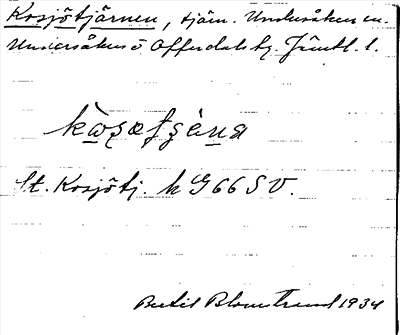 Kosjötjärnen, tjärn. Undersåkers sn.
Undersåkers o Offerdals tg. Jämtl. l.
kò̱ʂœʈʂɛ̀ɳa
St. Kosjötj. h G66SV.
Bertil Blomstrand 1934